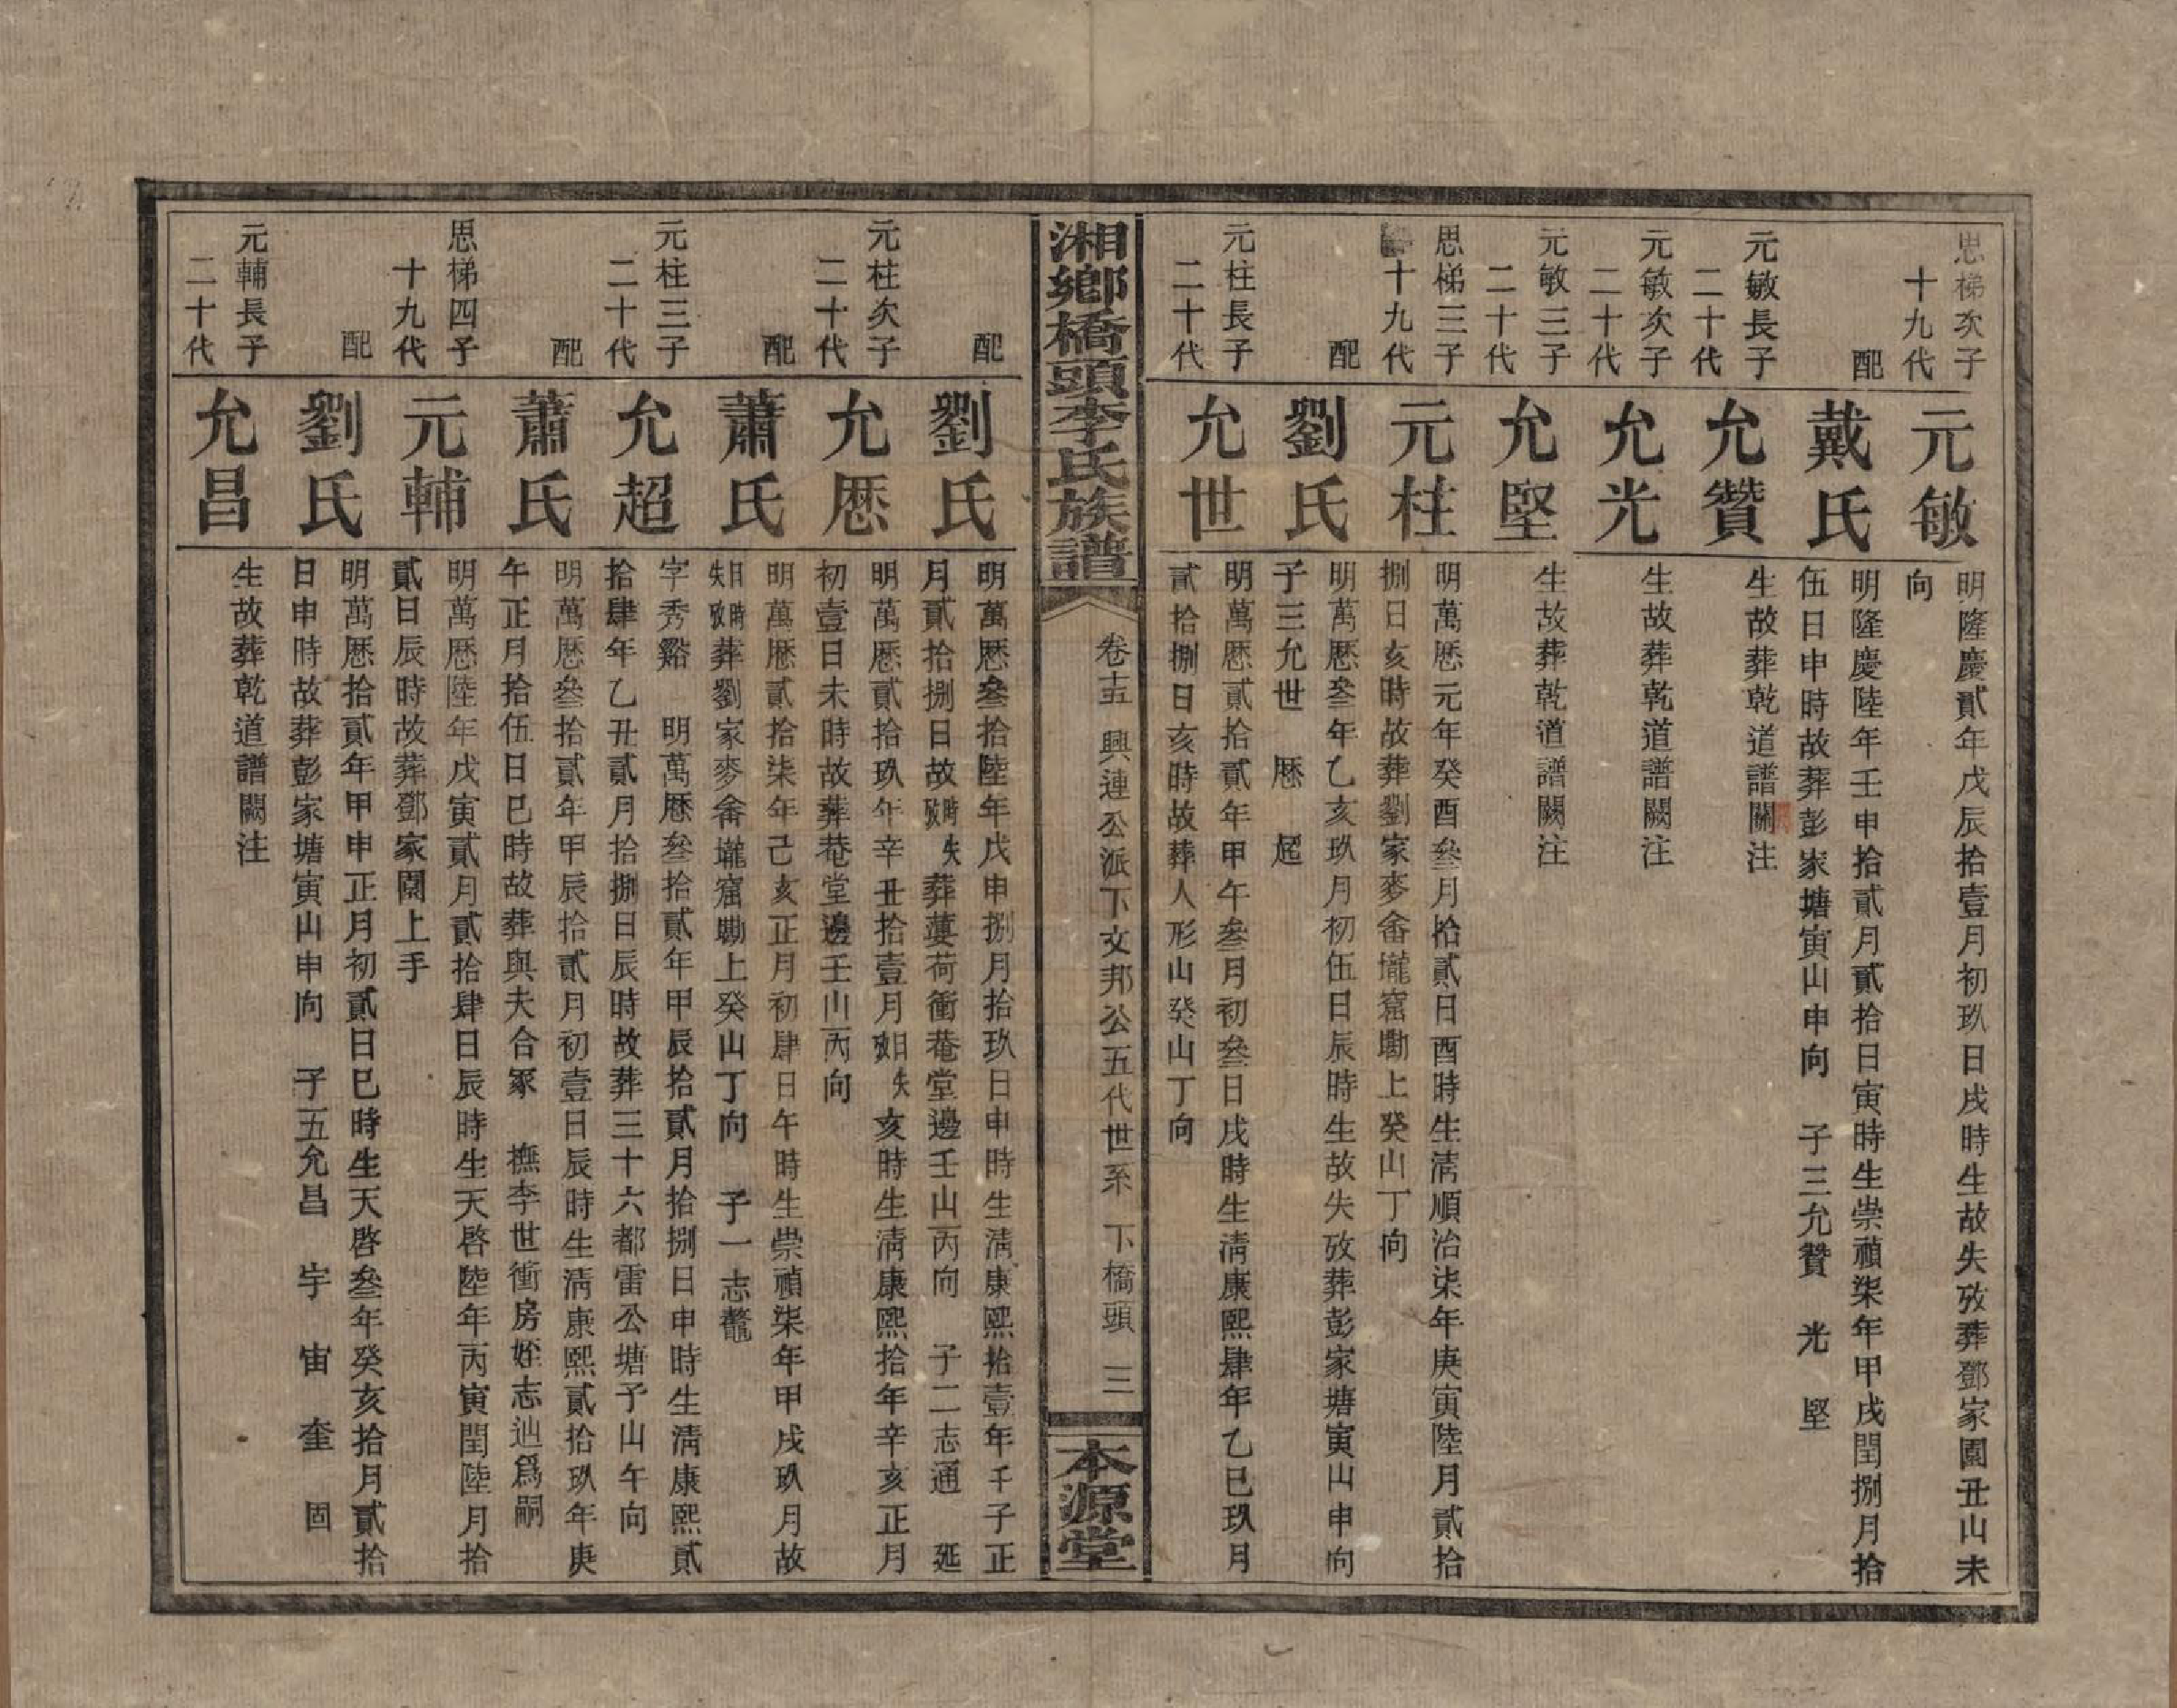 思梯次子
十九代
元敏
明隆慶貳年戊辰拾壹月初玖日戌時生故失攷葬鄧家園丑山未
向
配
戴氏
明隆慶陸年壬申拾貳月貳拾日寅時生崇禎柒年甲戌閏捌月拾
伍日申時故葬彭家塘寅山申向 子三允贊 光 堅
元敏長子
二十代
允贊
生故葬乾道譜闕注
元敏次子
二十代
允光
生故葬乾道譜闕注
元敏三子
二十代
允堅
生故葬乾道譜闕注
思梯三子
十九代
元柱
明萬厯元年癸酉叄月拾貳日酉時生淸順治柒年庚寅陸月貳拾
捌日亥時故葬劉家麥畬壠窟勘上癸山丁向
配
劉氏
明萬厯叄年乙亥玖月初伍日辰時生故失攷葬彭家塘寅山申向
子三允世 厯 超
元柱長子
二十代
允世
明萬厯貳拾貳年甲午叄月初叄日戌時生淸康熙肆年乙巳玖月
貳拾捌日亥時故葬人形山癸山丁向
湘鄉橋頭李氏族譜
卷十五 興連公派下文邦公五代世系 下橋頭 三
本源堂
配
劉氏
明萬厯叄拾陸年戊申捌月拾玖日申時生淸康熙拾壹年壬子正
月貳拾捌日故時失攷葬蔞荷衝菴堂邊壬山丙向 子二志通 延
元柱次子
二十代
允厯
明萬厯貳拾玖年辛丑拾壹月日失攷亥時生淸康熙拾年辛亥正月
初壹日未時故葬菴堂邊壬山丙向
配
蕭氏
明萬厯貳拾柒年己亥正月初肆日午時生崇禎柒年甲戌玖月故
日時失攷葬劉家麥畬壠窟勘上癸山丁向 子一志鼇
元柱三子
二十代
允超
字秀谿 明萬厯叄拾貳年甲辰拾貳月拾捌日申時生淸康熙貳
拾肆年乙丑貳月拾捌日辰時故葬三十六都雷公塘子山午向
配
蕭氏
明萬厯叄拾貳年甲辰拾貳月初壹日辰時生淸康熙貳拾玖年庚
午正月拾伍日巳時故葬與夫合冢 撫李世衝房姪志辿爲嗣
思梯四子
十九代
元輔
明萬厯陸年戊寅貳月貳拾肆日辰時生天啓陸年丙寅閏陸月拾
貳日辰時故葬鄧家園上手
配
劉氏
明萬厯拾貳年甲申正月初貳日巳時生天啓叄年癸亥拾月貳拾
日申時故葬彭家塘寅山申向 子五允昌 宇 宙 奎 固
元輔長子
二十代
允昌
生故葬乾道譜闕注